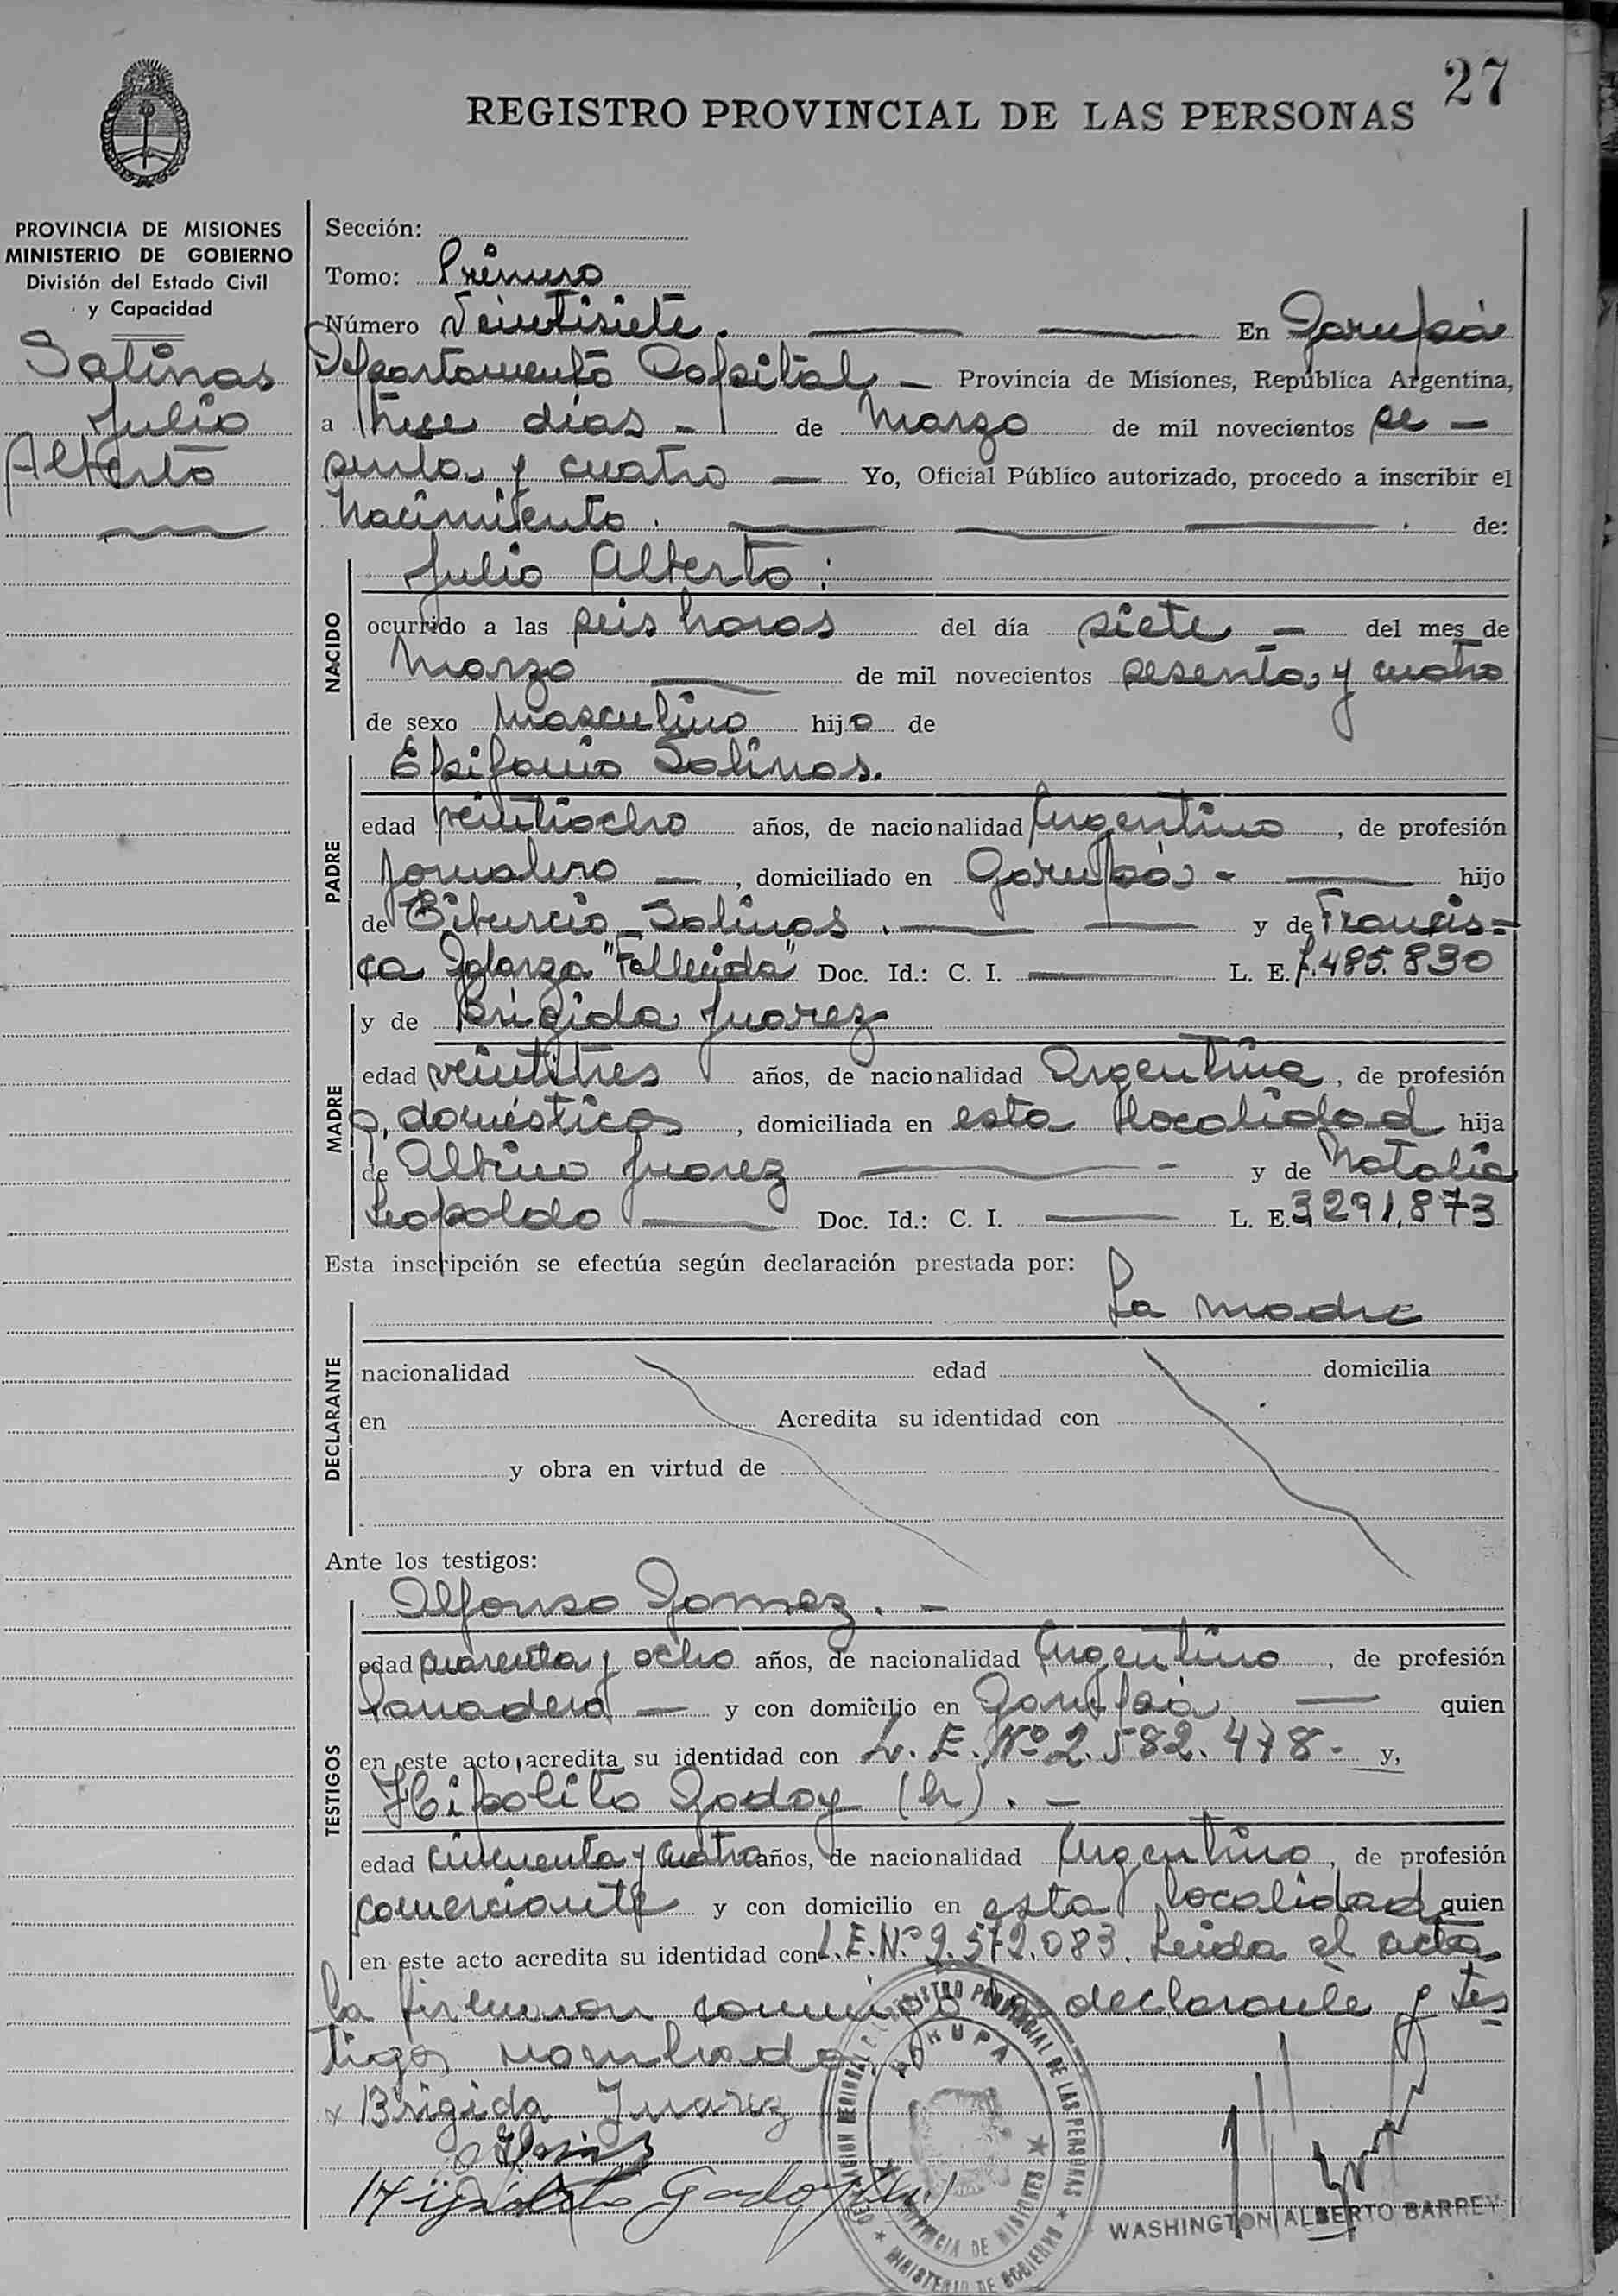 27
REGISTRO PROVINCIAL DE LAS PERSONAS
PROVINCIA DE MISIONES
MINISTERIO DE GOBIERNO
División del Estado Civil
y Capacidad
Salinas
Julio
Alberto
Sección:
Tomo: Primero
Número Veintisiete. En Garupá
Departamento Capital - Provincia de Misiones, República Argentina,
a trece días - de Marzo de mil novecientos se -
senta y cuatro — Yo, Oficial Público autorizado, procedo a inscribir el
Nacimiento. de:
NACIDO
Julio Alberto:
ocurrido a las seis horas del día siete - del mes de
Marzo de mil novecientos sesenta y cuatro
de sexo Masculino hijo de
PADRE
Epifanio Salinas.
edad veintiocho años, de nacionalidad Argentino, de profesión
Jornalero —, domiciliado en Garupá - hijo
de Salinas. y de Francis=
ca "Fallecida" Doc. Id.: C. I. — L. E. 7.485.830
MADRE
y de Brigida Juarez
edad veintitres años, de nacionalidad Argentina, de profesión
q. domésticos, domiciliada en esta localidad hija
de Albino Juarez - y de Natalia
Leopoldo Doc. Id.: C. I. — L. E. 3.291.873
Esta inscripción se efectúa según declaración prestada por:
La madre
DECLARANTE
nacionalidad edad domicilia
en Acredita su identidad con
y obra en virtud de
Ante los testigos:
TESTIGOS
Alfonso Gomez. -
edad cuarenta y ocho años, de nacionalidad Argentino, de profesión
Panadero — y con domicilio en Garupá — quien
en este acto, acredita su identidad con L. E. Nº 2.582.478 - y,
Hipolito Godoy (h). -
edad cincuenta y cuatro años, de nacionalidad Argentino, de profesión
comerciante y con domicilio en esta localidad quien
en este acto acredita su identidad con L.E.Nº 2.572.083. Leída el acta
la firmaron conmigo la declarante y tes
tigos nombrados
x Brigida Juarez
Hipolito Godoy (h)
REGISTRO PROVINCIAL DE LAS PERSONAS
GARUPA
PROVINCIA DE MISIONES
MINISTERIO DE GOBIERNO
WASHINGTON ALBERTO BARREY